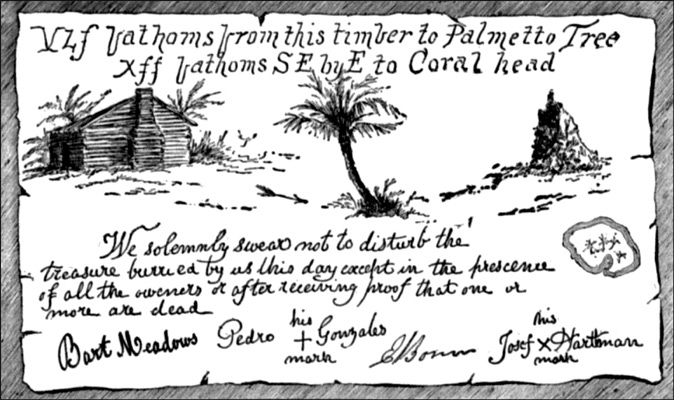 fathoms from this timber to Palmetto Tree
Xff fathoms SE by E to Coral head
We solemnly swear not to disturb the
treasure burried by us this day except in the prescence
of all the owners or after receiving proof that one or
more are dead
Bart Meadows Pedro his + mark Gonzales Josef his x mark Harttman